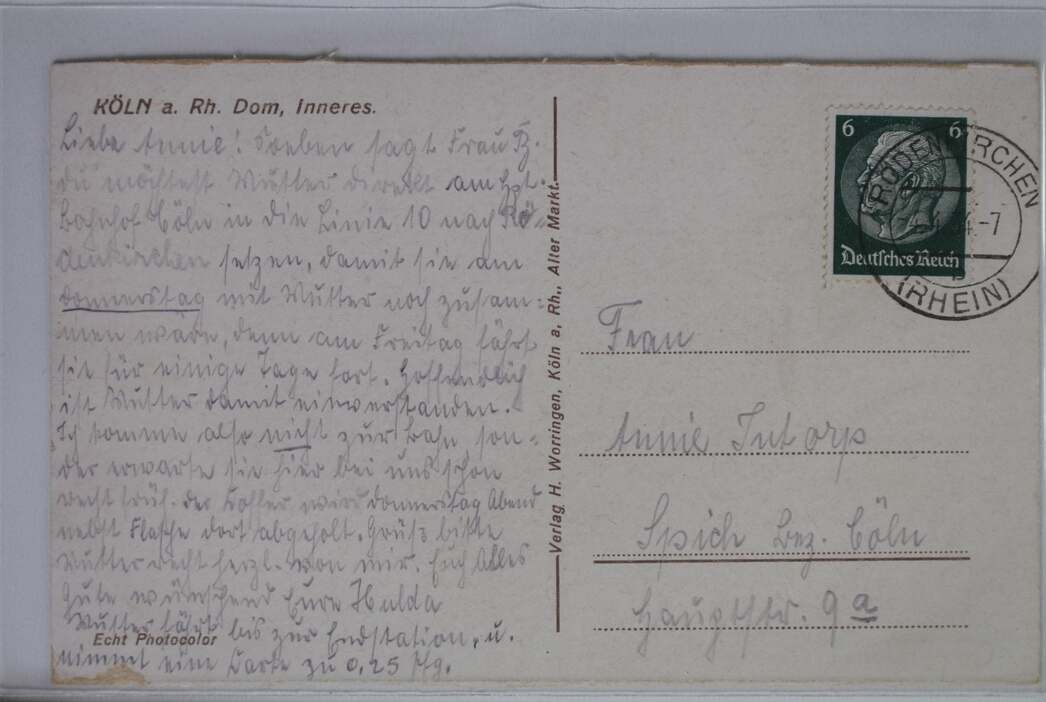 KÖLN a. Rh. Dom, Inneres.
Liebe Annie! Soeben sagt Frau
du möchtest Mutter direkt am Hpt.
Bahnhof Cöln in die Linie 10 nach Rö-
denkirchen setzen, damit sie am
Donnerstag mit Mutter noch zusam-
men wäre, denn am Freitag fährt
sie für einige Tage fort. Hoffendlich
ist Mutter damit einverstanden.
Ich komme also nicht zur Bahn son-
der erwarte sie hier bei uns schon
recht früh. der Koffer wird donnerstag Abend
nebst Flasche dort abgeholt. Grüß bitte
Mutter recht herzl. von mir. Euch Alles
Gute wünschend Eure Hulda
Mutter fährt bis zur Endstation, u.
Echt Photocolor
nimmt eine Karte zu 0,25 Pfg.
Verlag H. Worringen, Köln a. Rh., Alter Markt.
6 6
Deutsches Reich
RODENKIRCHEN
4.-7
(RHEIN)
Frau
Annie Intorp
Spich Bez. Cöln
Hauptstr. 9a